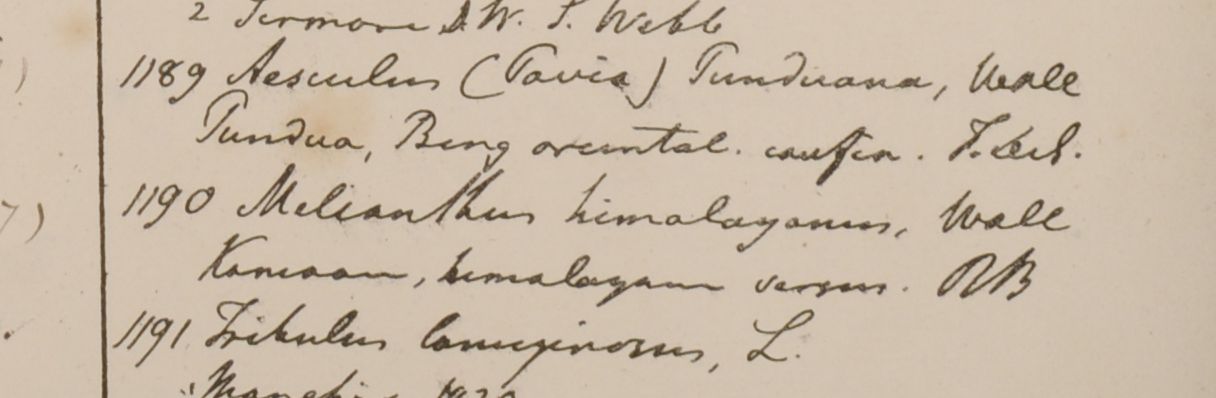 2 Sermore D.W. S. Webb
1189 Aesculus (Pavia) Punduana, Wall
Pundua, Beng oriental. confin. F. de S.
1190 Melianthus himalayanus, Wall
Kamaon, himalayam versus. RB
1191 Tribulus lanuginosus, L.